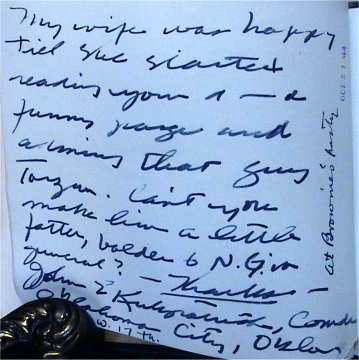 My wife was happy
till she started
reading your d—d
funny page and
admiring that guy
Tarzan. Can't you
make him a little
fatter, balder & N.G. in
general? — Thanks —
John E Kirkpatrick, Comdr
Oklahoma City, Okla
W. 17th.
At Brownie's party
OCT 21